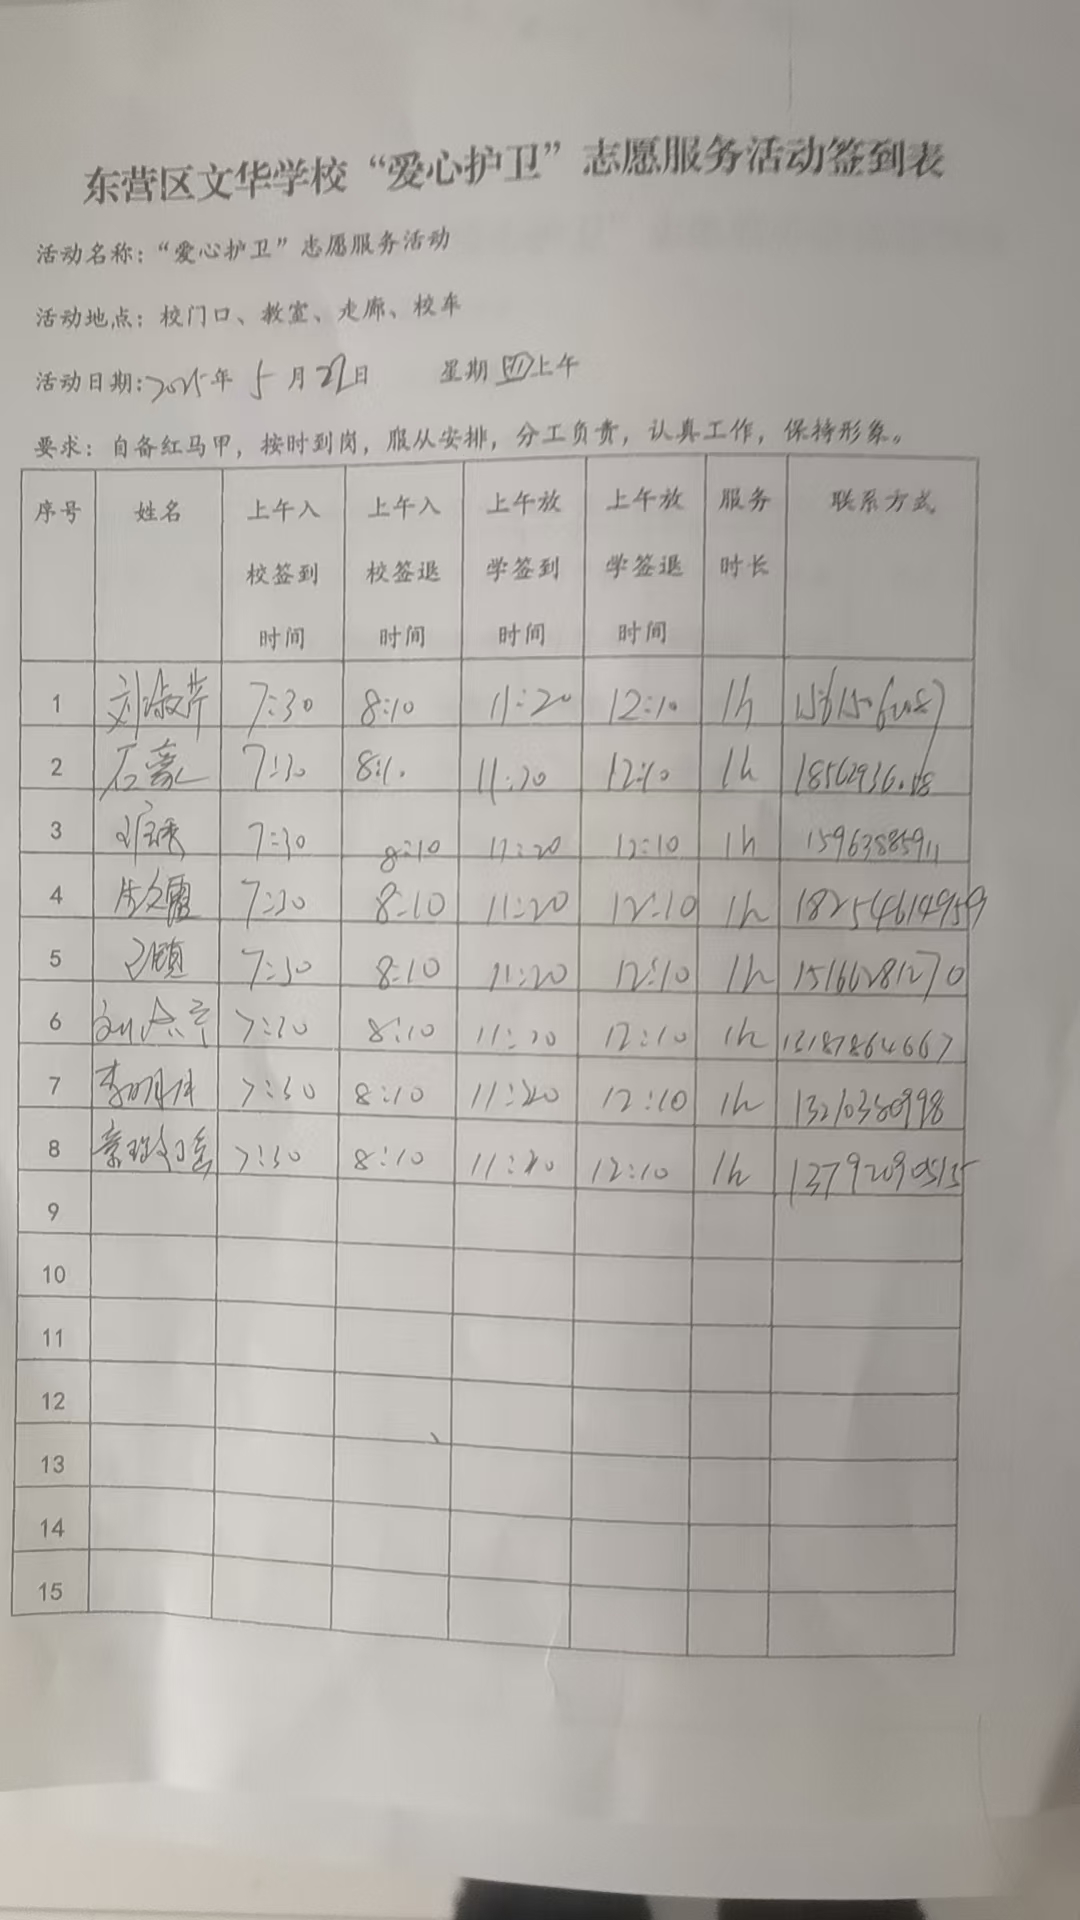 东营区文华学校“爱心护卫”志愿服务活动签到表
活动名称：“爱心护卫”志愿服务活动
活动地点：校门口、教室、走廊、校车
活动日期：2025年 5月22日 星期四上午
要求：自备红马甲，按时到岗，服从安排，分工负责，认真工作，保持形象。
序号 姓名 上午入校签到时间 上午入校签退时间 上午放学签到时间 上午放学签退时间 服务时长 联系方式
1 刘淑芹 7:30 8:10 11:20 12:10 1h
2 石豪 7:30 8:10 11:20 12:10 1h
3 7:30 8:10 11:20 12:10 1h 15963885911
4 7:30 8:10 11:20 12:10 1h 18254614959
5 7:30 8:10 11:20 12:10 1h 15166281270
6 7:30 8:10 11:20 12:10 1h 13187864667
7 李明佳 7:30 8:10 11:20 12:10 1h 13210380998
8 7:30 8:10 11:20 12:10 1h 13792090515
9
10
11
12
13
14
15